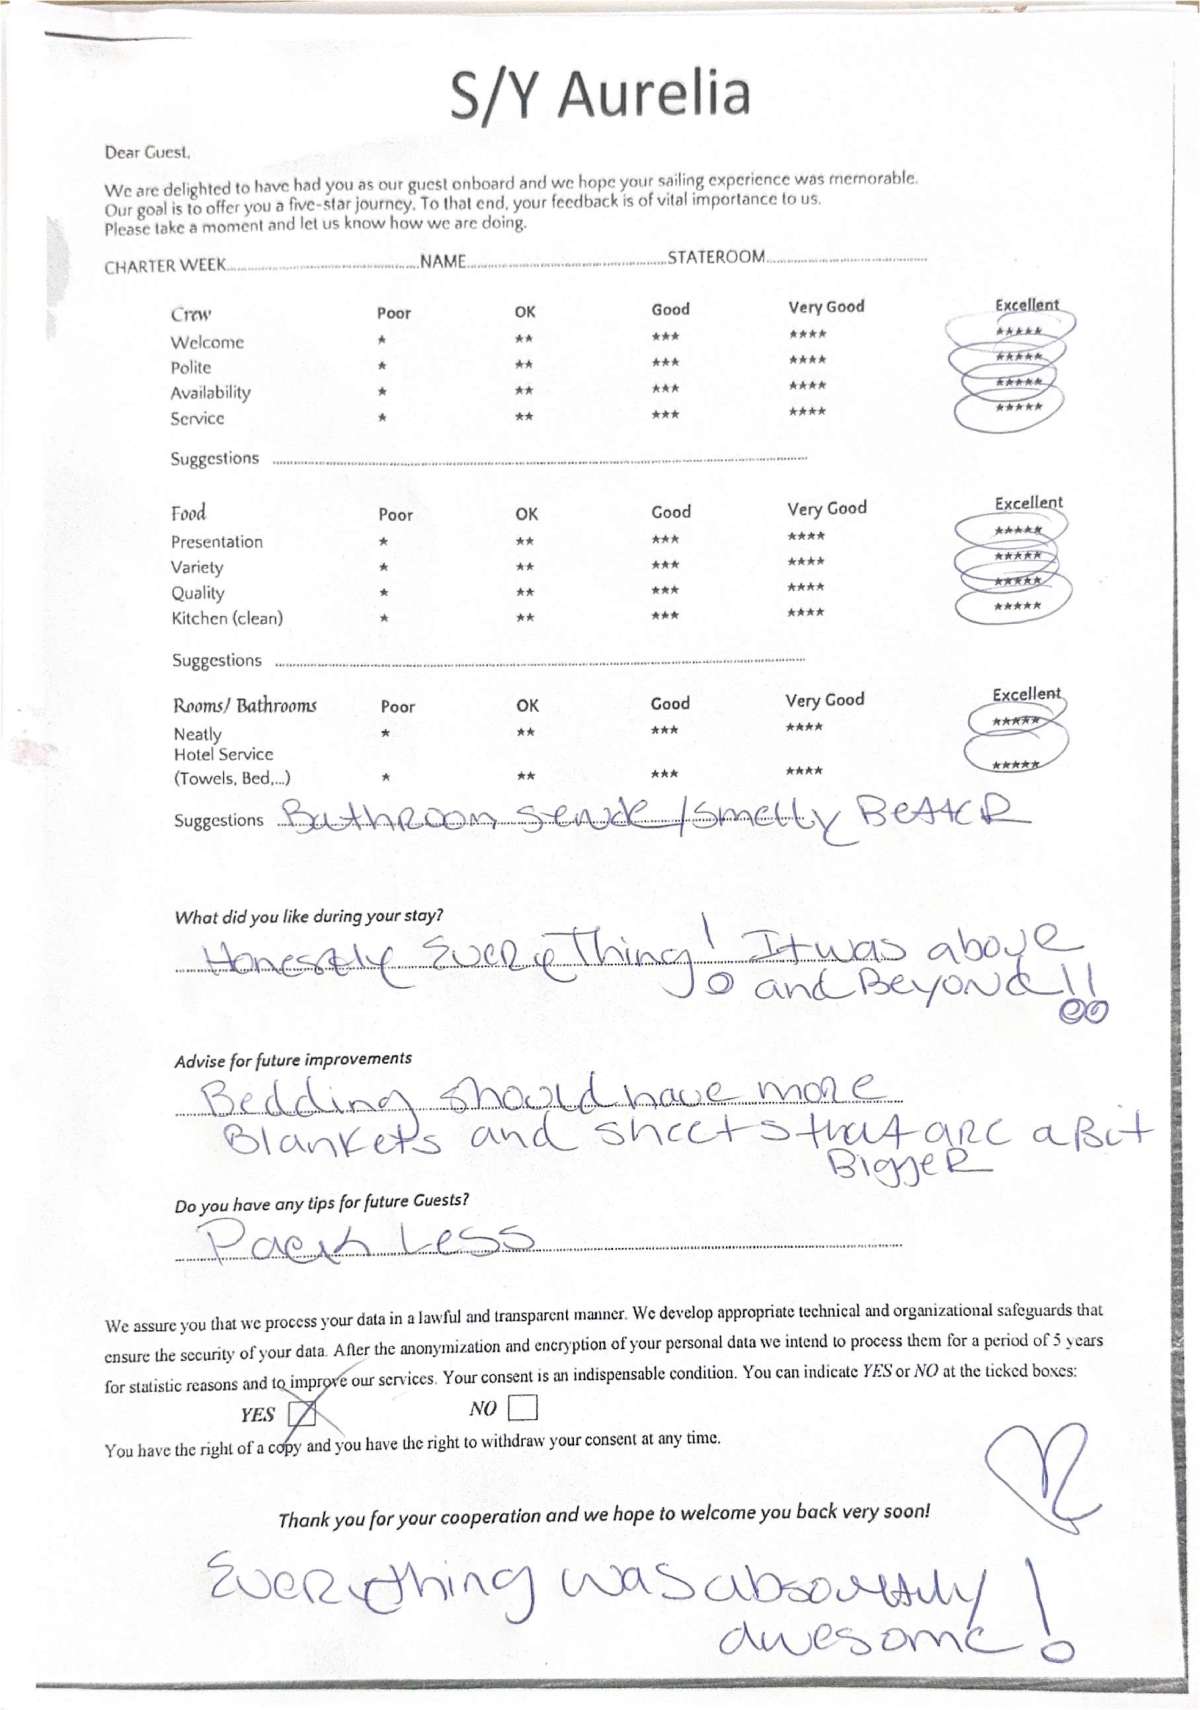 S/Y Aurelia
Dear Guest,
We are delighted to have had you as our guest onboard and we hope your sailing experience was memorable.
Our goal is to offer you a five-star journey. To that end, your feedback is of vital importance to us.
Please take a moment and let us know how we are doing.
CHARTER WEEK NAME STATEROOM
Crew Poor OK Good Very Good Excellent
Welcome * ** *** **** *****
Polite * ** *** **** *****
Availability * ** *** **** *****
Service * ** *** **** *****
Suggestions
Food Poor OK Good Very Good Excellent
Presentation * ** *** **** *****
Variety * ** *** **** *****
Quality * ** *** **** *****
Kitchen (clean) * ** *** **** *****
Suggestions
Rooms/ Bathrooms Poor OK Good Very Good Excellent
Neatly * ** *** **** *****
Hotel Service
(Towels, Bed,...) * ** *** **** *****
Suggestions BathRoom /smelly BetteR
What did you like during your stay?
Honestly EveRything! It was above
and Beyond!!
Advise for future improvements
Bedding should have more
Blankets and sheets that are a Bit
BiggeR
Do you have any tips for future Guests?
Pack Less
We assure you that we process your data in a lawful and transparent manner. We develop appropriate technical and organizational safeguards that
ensure the security of your data. After the anonymization and encryption of your personal data we intend to process them for a period of 5 years
for statistic reasons and to improve our services. Your consent is an indispensable condition. You can indicate YES or NO at the ticked boxes:
YES NO
You have the right of a copy and you have the right to withdraw your consent at any time.
Thank you for your cooperation and we hope to welcome you back very soon!
EveRything was absoulttly
awesome!